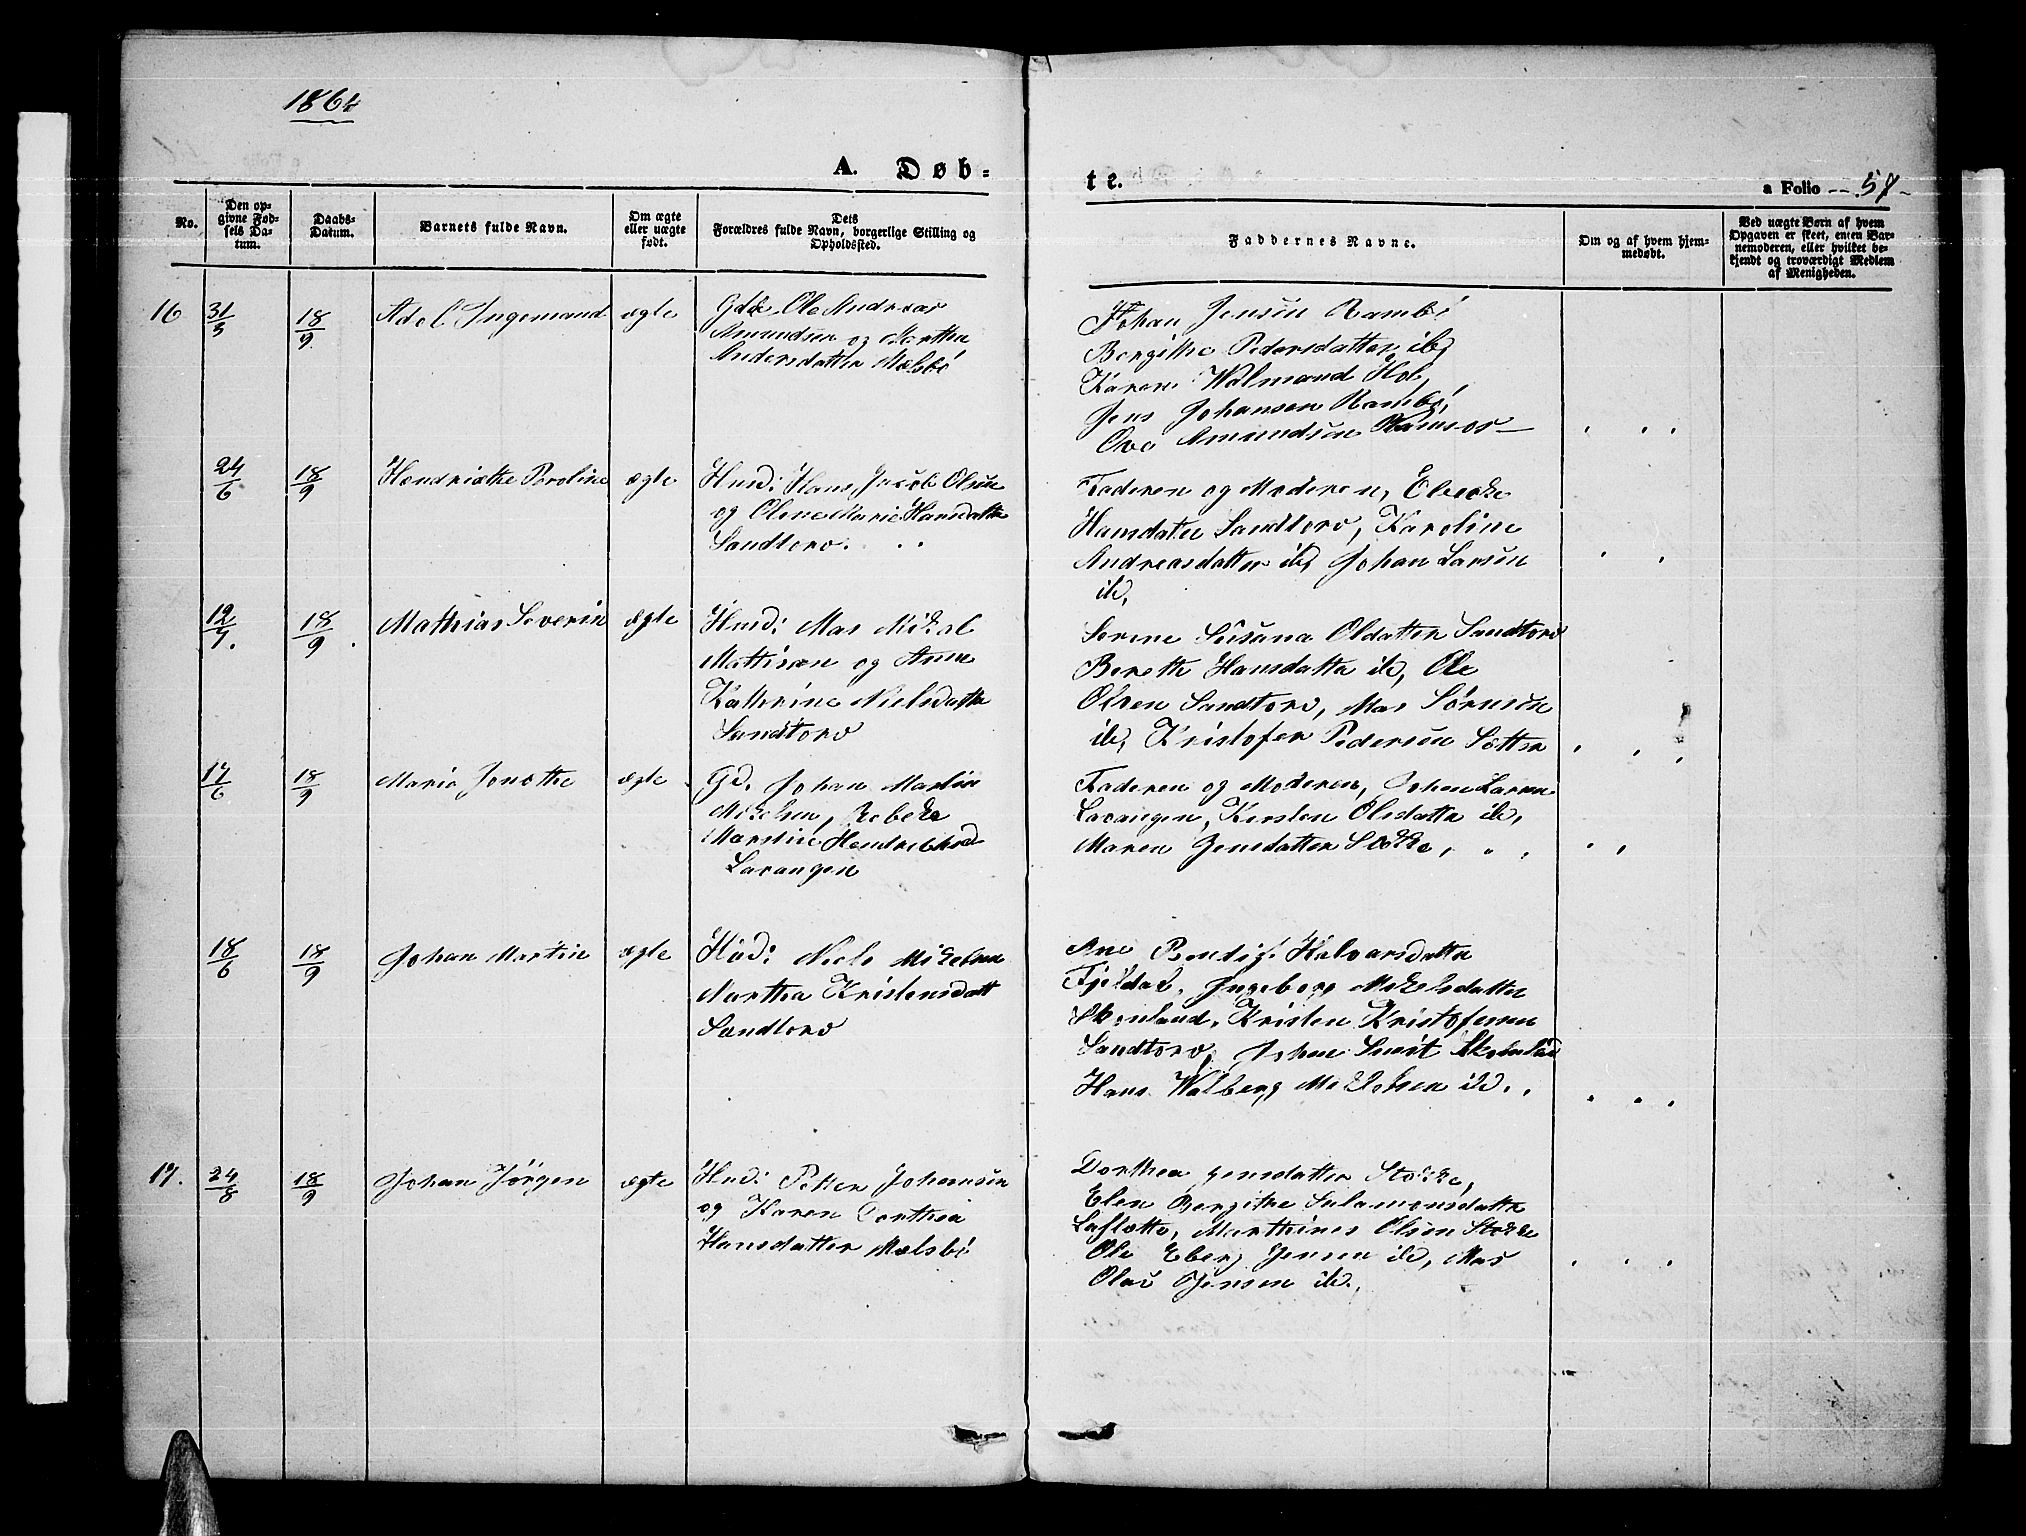 1864
A. Døb-
te.
a Folio 57
No.
Den op-
givne Fød-
sels Da-
tum.
Daabs-
Datum.
Barnets fulde Navn.
Om ægte
eller uægte
født.
Dets
Forældres fulde Navn, borgerlige Stilling og
Opholdssted.
Faddernes Navne.
Om og af hvem hjem-
medøbt.
Ved uægte Børn af hvem
Opgaven er skeet, enten Bar-
nemoderen, eller hvilket be-
kjendt og troværdigt Medlem
af Menigheden.
16 31/5 18/9 Adel Ingemand ægte
Ole Andreas
Amundsen og Marthea
Andersdatter Mælsbö
Johan Jensen Rambö
Bergithe Pedersdatter ib,
Karen Wolmand Hol,
Jens Johansen Rambö,
Ove Amundsen
24/6 18/9 Hendriethe Peroline ægte
Husd: Hans Jacob Olsen
og Olene Marie Hansdatter
Sandtorv.
Faderen og Moderen,
Hansdatter Sandtorv, Karoline
Andreasdatter ib, Johan Larsen
ib,
12/7. 18/9. Mathias Severin ægte
Husd: Mas Mikal
Mathisen og Anne
Kathrine Nielsdatter
Sandtorv
Serene Susana Olsdatter Sandtorv
Bereth Hansdatter ib, Ole
Olsen Sandtorv, Mas Sörensen
ib, Kristofer Pedersen Sætter
17/6 18/9 Maria Jonethe ægte
Gd. Johan Martin
Mikelsen, Rebeka
Marthine
Lavangen
Faderen og Moderen, Johan Larsen
Lavangen, Kirsten Olsdatter ib,
Maren Jensdatter Stokke,
18/6 18/9 Johan Martin ægte
Husd: Niels Mikelsen
Marthea Kristensdatt
Sandtorv
Ane Halvarsdatter
Fjeldal, Ingeborg Mikelsdatter
Skonland, Kristen Kristofersen
Sandtorv, Johan
Hans Walberg Mikelsen ib.
17. 24/8 18/9 Johan Jörgen ægte
Husd: Peter Johansen
og Karen Dorthea
Hansdatter Mælsbö
Dorthea Jensdatter Stokke,
Elen Bergithe Salamonsdatter
Marthines Olsen Stokke
Ole Eberg Jensen ib, Mas
Olai Jensen ib.